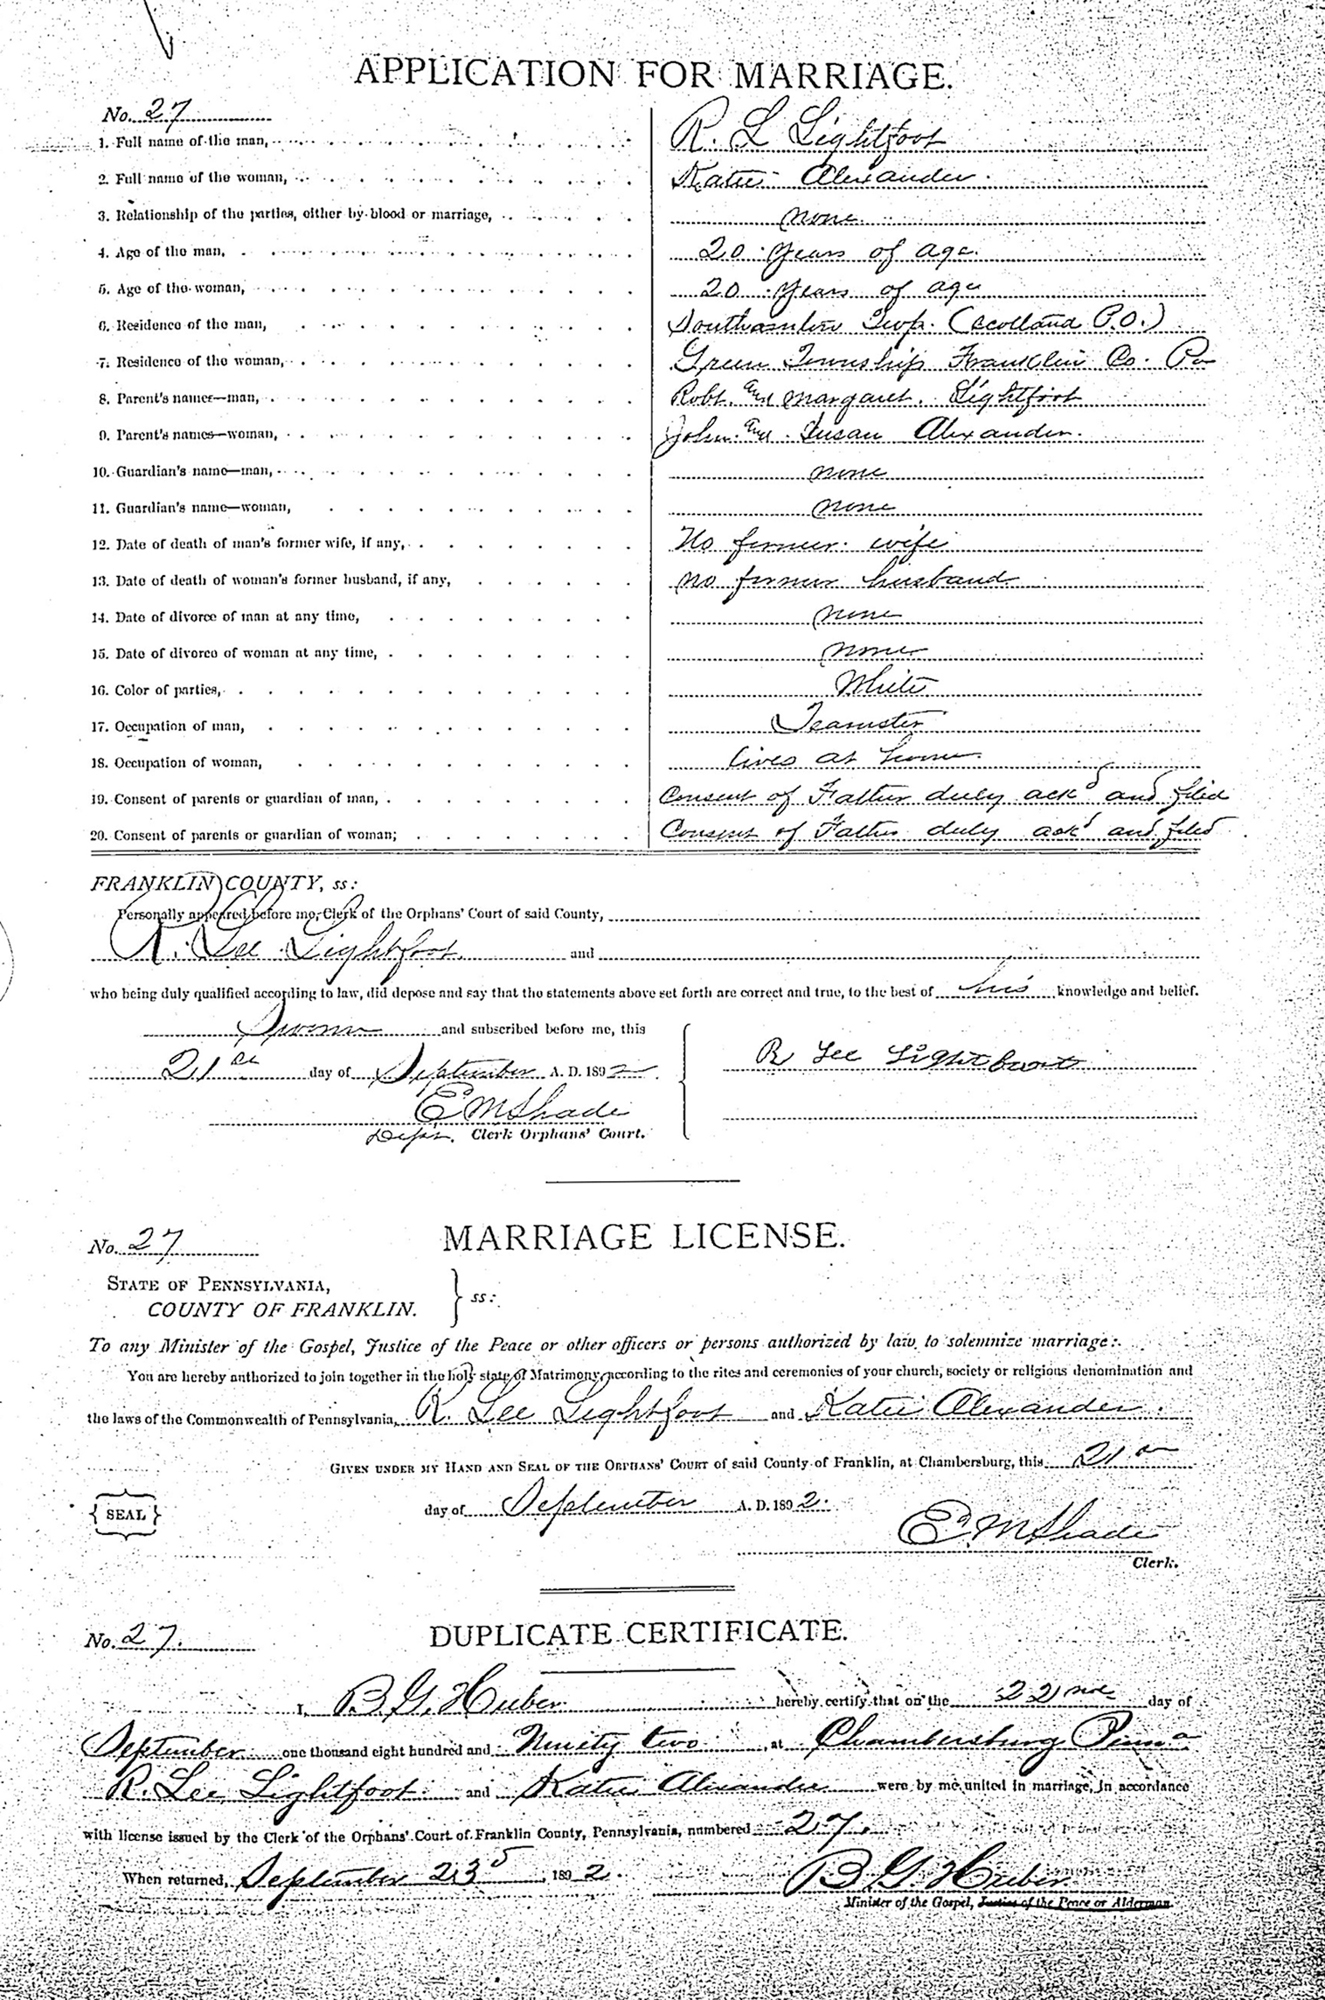 APPLICATION FOR MARRIAGE.
No. 27
1. Full name of the man, R. L Lightfoot
2. Full name of the woman, Katie Alexander.
3. Relationship of the parties, either by blood or marriage, none
4. Age of the man, 20 years of age
5. Age of the woman, 20 years of age
6. Residence of the man, Southampton Twp. (Scotland P.O.)
7. Residence of the woman, Green Township Franklin Co. Pa
8. Parent's names—man, Robt. and Margaret. Lightfoot
9. Parent's names—woman, John. and Susan Alexander.
10. Guardian's name—man, none
11. Guardian's name—woman, none
12. Date of death of man's former wife, if any, No former wife
13. Date of death of woman's former husband, if any, no former husband
14. Date of divorce of man at any time, none
15. Date of divorce of woman at any time, none
16. Color of parties, White
17. Occupation of man, Teamster
18. Occupation of woman, lives at home.
19. Consent of parents or guardian of man, Consent of Father duly ackd and filed
20. Consent of parents or guardian of woman; Consent of Father duly ackd and filed
FRANKLIN COUNTY, ss:
Personally appeared before me, Clerk of the Orphans' Court of said County,
R. Lee Lightfoot and
who being duly qualified according to law, did depose and say that the statements above set forth are correct and true, to the best of his knowledge and belief.
Sworn and subscribed before me, this
21st day of September A. D. 1892. R Lee Lightfoot
E M Shade
Depy. Clerk Orphans' Court.
No. 27 MARRIAGE LICENSE.
STATE OF PENNSYLVANIA,
COUNTY OF FRANKLIN. ss:
To any Minister of the Gospel, Justice of the Peace or other officers or persons authorized by law to solemnize marriage:
You are hereby authorized to join together in the holy state of Matrimony, according to the rites and ceremonies of your church, society or religious denomination and
the laws of the Commonwealth of Pennsylvania, R. Lee Lightfoot and Katie Alexander.
GIVEN UNDER MY HAND AND SEAL OF THE ORPHANS' COURT of said County of Franklin, at Chambersburg, this 21st
SEAL day of September A. D. 1892.
E. M Shade
Clerk.
No. 27. DUPLICATE CERTIFICATE.
I, B. G. Huber hereby certify that on the 22nd day of
September one thousand eight hundred and Ninety two, at Chambersburg Penna
R. Lee Lightfoot and Katie Alexander were by me united in marriage, in accordance
with license issued by the Clerk of the Orphans' Court of Franklin County, Pennsylvania, numbered 27.
When returned, September 23d, 1892. B. G. Huber
Minister of the Gospel, Justice of the Peace or Alderman.